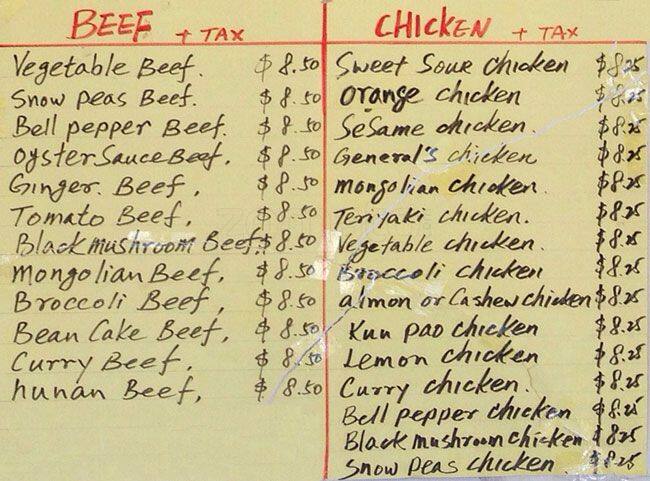 BEEF + TAX
Vegetable Beef. $8.50
Snow peas Beef. $8.50
Bell pepper Beef. $8.50
Oyster Sauce Beef, $8.50
Ginger. Beef, $8.50
Tomato Beef, $8.50
Black mushroom Beef. $8.50
Mongolian Beef, $8.50
Broccoli Beef, $8.50
Bean Cake Beef, $8.50
Curry Beef, $8.50
hunan Beef, $8.50
CHICKEN + TAX
Sweet Sour chicken $8.25
Orange chicken $8.25
SeSame chicken. $8.25
General's chicken $8.25
mongolian chicken. $8.25
Teriyaki chicken. $8.25
Vegetable chicken. $8.25
Broccoli chicken $8.25
almon or Cashew chicken $8.25
Kun pao chicken $8.25
Lemon chicken $8.25
Curry chicken. $8.25
Bell pepper chicken $8.25
Black mushroom chicken $8.25
Snow peas chicken. $8.25